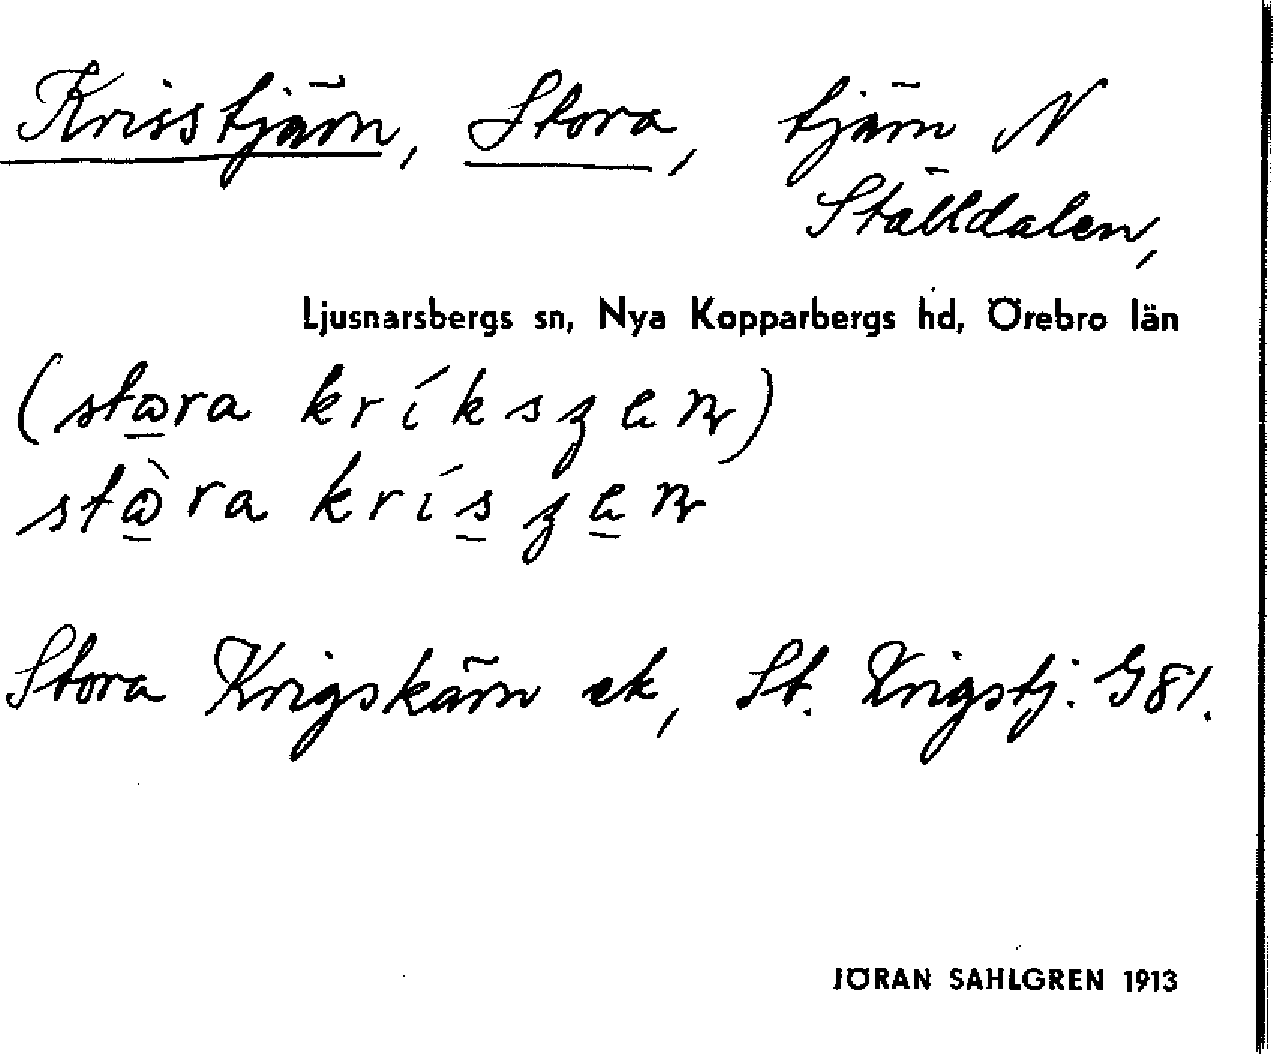 Krisstjärn, Stora, tjärn N
Ställdalen,
Ljusnarsbergs sn, Nya Kopparbergs hd, Örebro län
(stora kríkszen)
stòra kríszen
Stora Krigskärn ek, St. Krigstj. G81.
JÖRAN SAHLGREN 1913